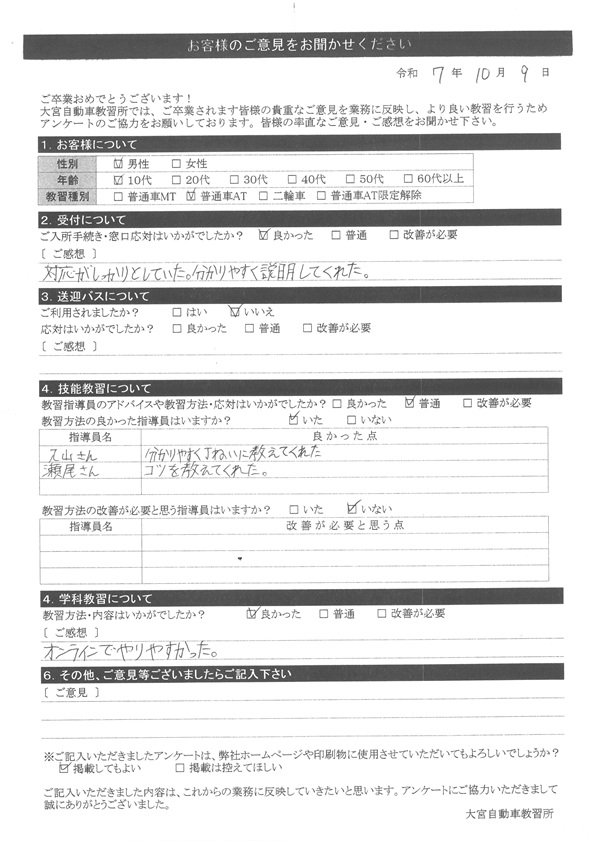 お客様のご意見をお聞かせください
令和 7 年 10 月 9 日
ご卒業おめでとうございます！
大宮自動車教習所では、ご卒業されます皆様の貴重なご意見を業務に反映し、より良い教習を行うため
アンケートのご協力をお願いしております。皆様の率直なご意見・ご感想をお聞かせ下さい。
1. お客様について
性別 ☑ 男性 □ 女性
年齢 ☑ 10代 □ 20代 □ 30代 □ 40代 □ 50代 □ 60代以上
教習種別 □ 普通車MT ☑ 普通車AT □ 二輪車 □ 普通車AT限定解除
2. 受付について
ご入所手続き・窓口応対はいかがでしたか？ ☑ 良かった □ 普通 □ 改善が必要
〔 ご感想 〕
対応がしっかりとしていた。分かりやすく説明してくれた。
3. 送迎バスについて
ご利用されましたか？ □ はい ☑ いいえ
応対はいかがでしたか？ □ 良かった □ 普通 □ 改善が必要
〔 ご感想 〕
4. 技能教習について
教習指導員のアドバイスや教習方法・応対はいかがでしたか？ □ 良かった ☑ 普通 □ 改善が必要
教習方法の良かった指導員はいますか？ ☑ いた □ いない
指導員名 良かった点
山さん 分かりやすく丁ねいに教えてくれた
瀬尾さん コツを教えてくれた。
教習方法の改善が必要と思う指導員はいますか？ □ いた ☑ いない
指導員名 改善が必要と思う点
4. 学科教習について
教習方法・内容はいかがでしたか？ ☑ 良かった □ 普通 □ 改善が必要
〔 ご感想 〕
オンラインでやりやすかった。
6. その他、ご意見等ございましたらご記入下さい
〔 ご意見 〕
※ご記入いただきましたアンケートは、弊社ホームページや印刷物に使用させていただいてもよろしいでしょうか？
☑ 掲載してもよい □ 掲載は控えてほしい
ご記入いただきました内容は、これからの業務に反映していきたいと思います。アンケートにご協力いただきまして
誠にありがとうございました。
大宮自動車教習所